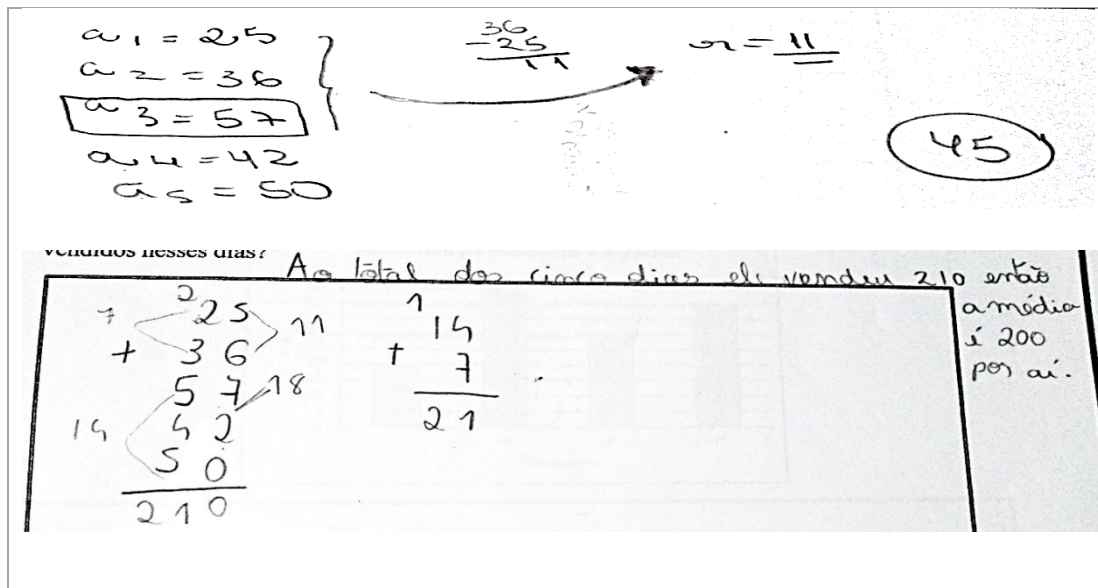 a1 = 25
a2 = 36
a3 = 57
a4 = 42
a5 = 50
36
-25
11
r = 11
45
vendidos nesses dias?
Ao total dos cinco dias ele vendeu 210 então
a média
é 200
por aí.
2
7 25 11
+ 36
57 18
14 42
50
210
1
14
+ 7
21